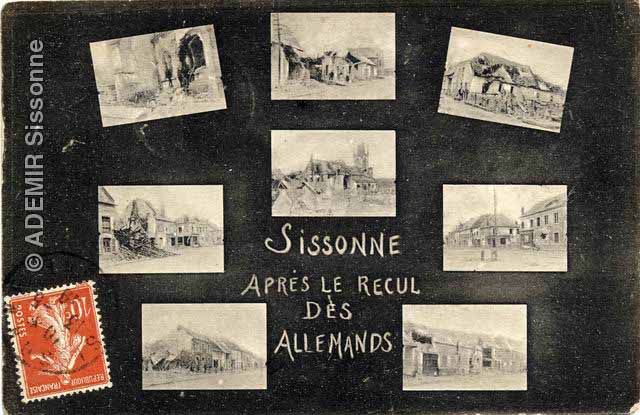 © ADEMIR Sissonne
SISSONNE
APRÉS LE RECUL
DÈS
ALLEMANDS
10c
POSTES
REPUBLIQUE FRANÇAISE